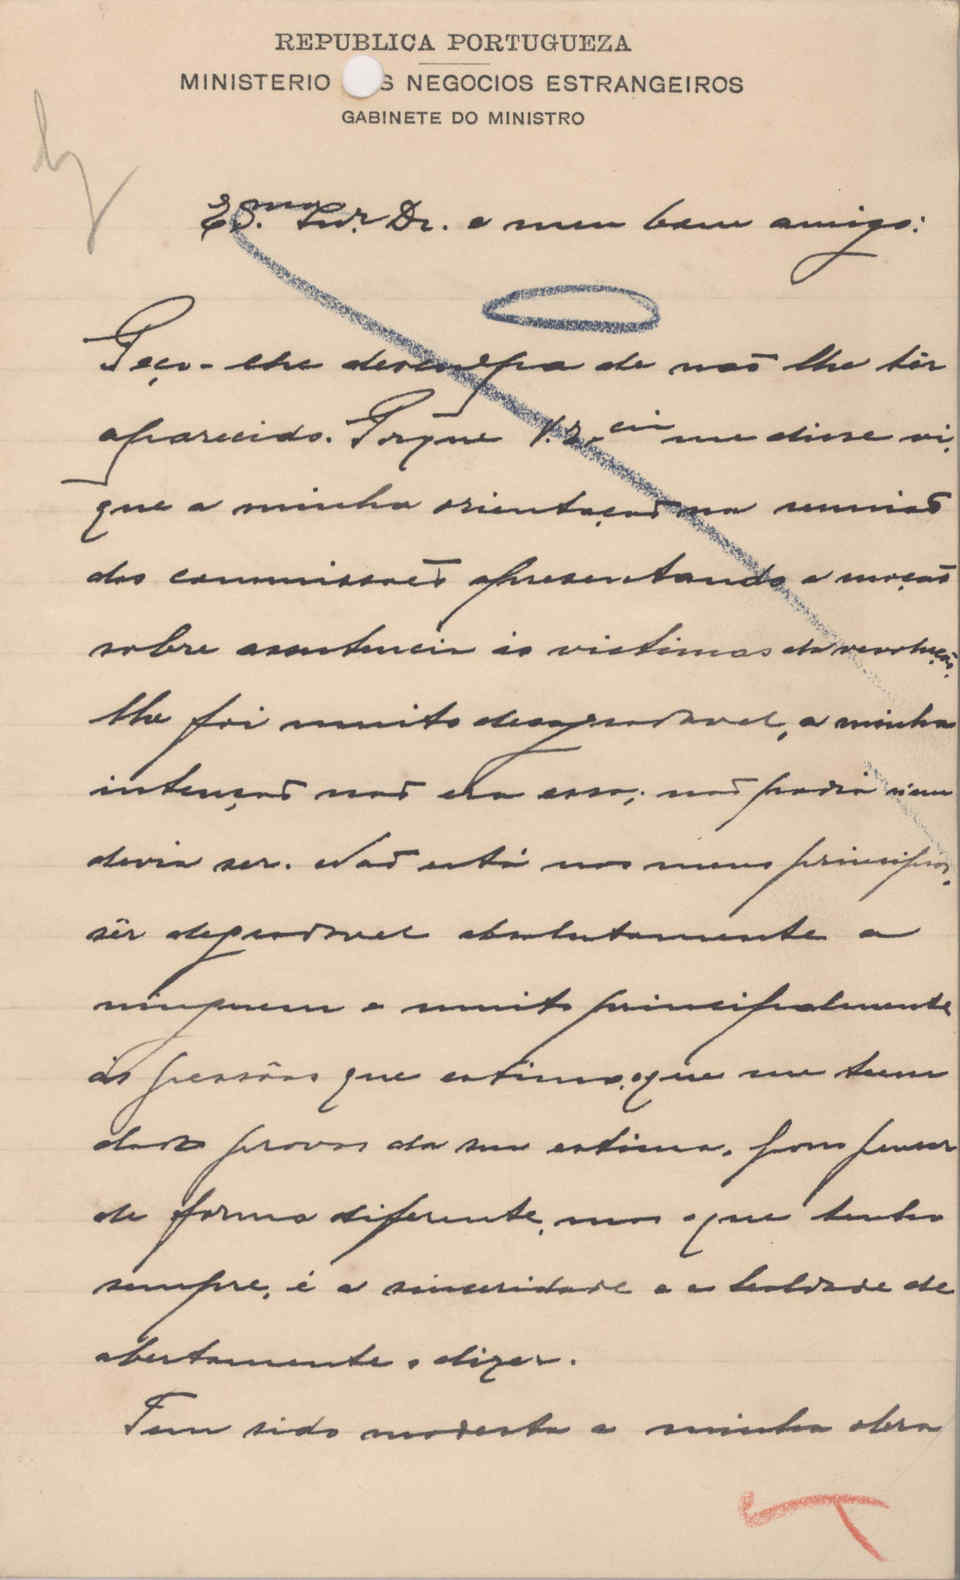 REPUBLICA PORTUGUEZA
MINISTERIO S NEGOCIOS ESTRANGEIROS
GABINETE DO MINISTRO
Snr. Dr. e meu bom amigo:
Peço-lhe desculpa de não lhe têr
aparecido. Porque V. Ex.cia me disse vi,
que a minha orientação na reunião
das commissões apresentando a moção
sobre assistencia ás victimas da revolução,
lhe foi muito desagradavel, a minha
intenção não era essa; não podia nem
devia ser. Não está nos meus principios,
sêr desagradavel absolutamente a
ninguem e muito principalmente
ás pessôas que estimo, e que me teem
dado provas da sua estima. pensar
de forma diferente, mas o que tenho
sempre, é a sinceridade e a lealdade de
abertamente o dizer.
Tem sido modesta a minha obra